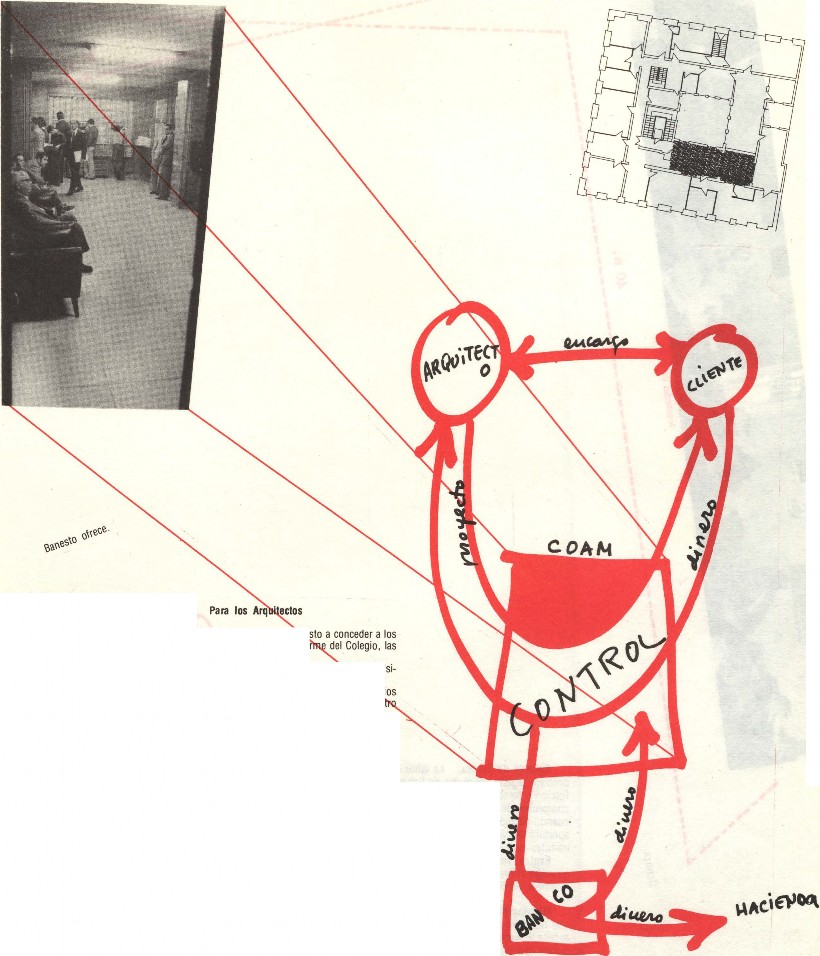 ARQUITECT
O
encargo
CLIENTE
proyecto
dinero
COAM
Banesto ofrece.
Para los Arquitectos
sto a conceder a los
rme del Colegio, las
si-
os
tro
CONTROL
dinero
dinero
BANCO
dinero
HACIENDA